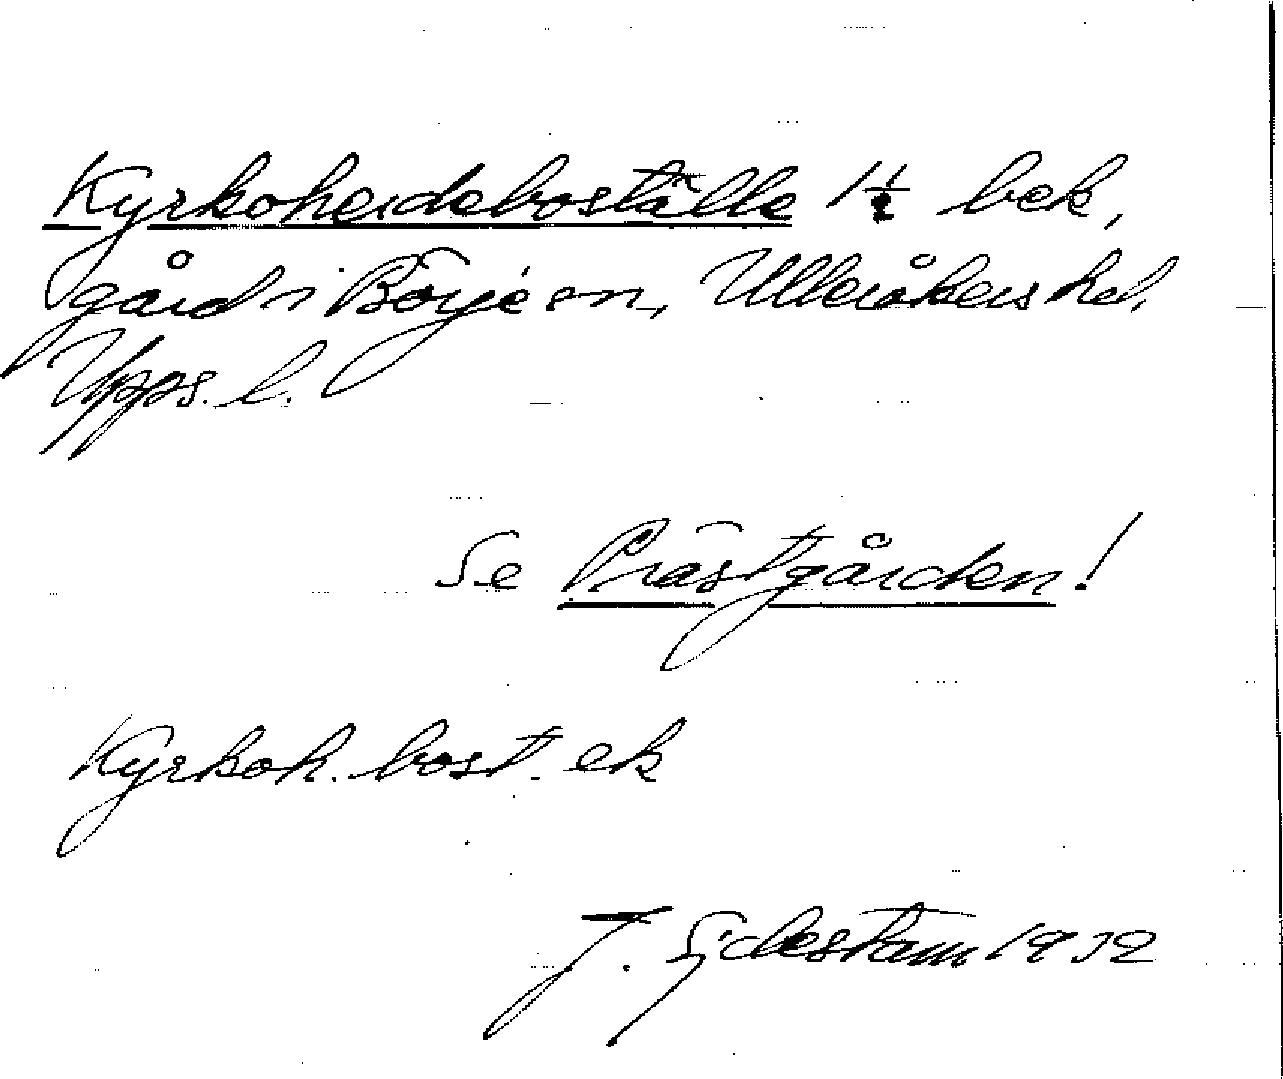 Kyrkoherdeboställe 1½ bek,
gård i Börje sn, Ulleråkers hd,
Upps. l.
Se Prästgården!
Kyrkoh. bost. ek
J. 1932